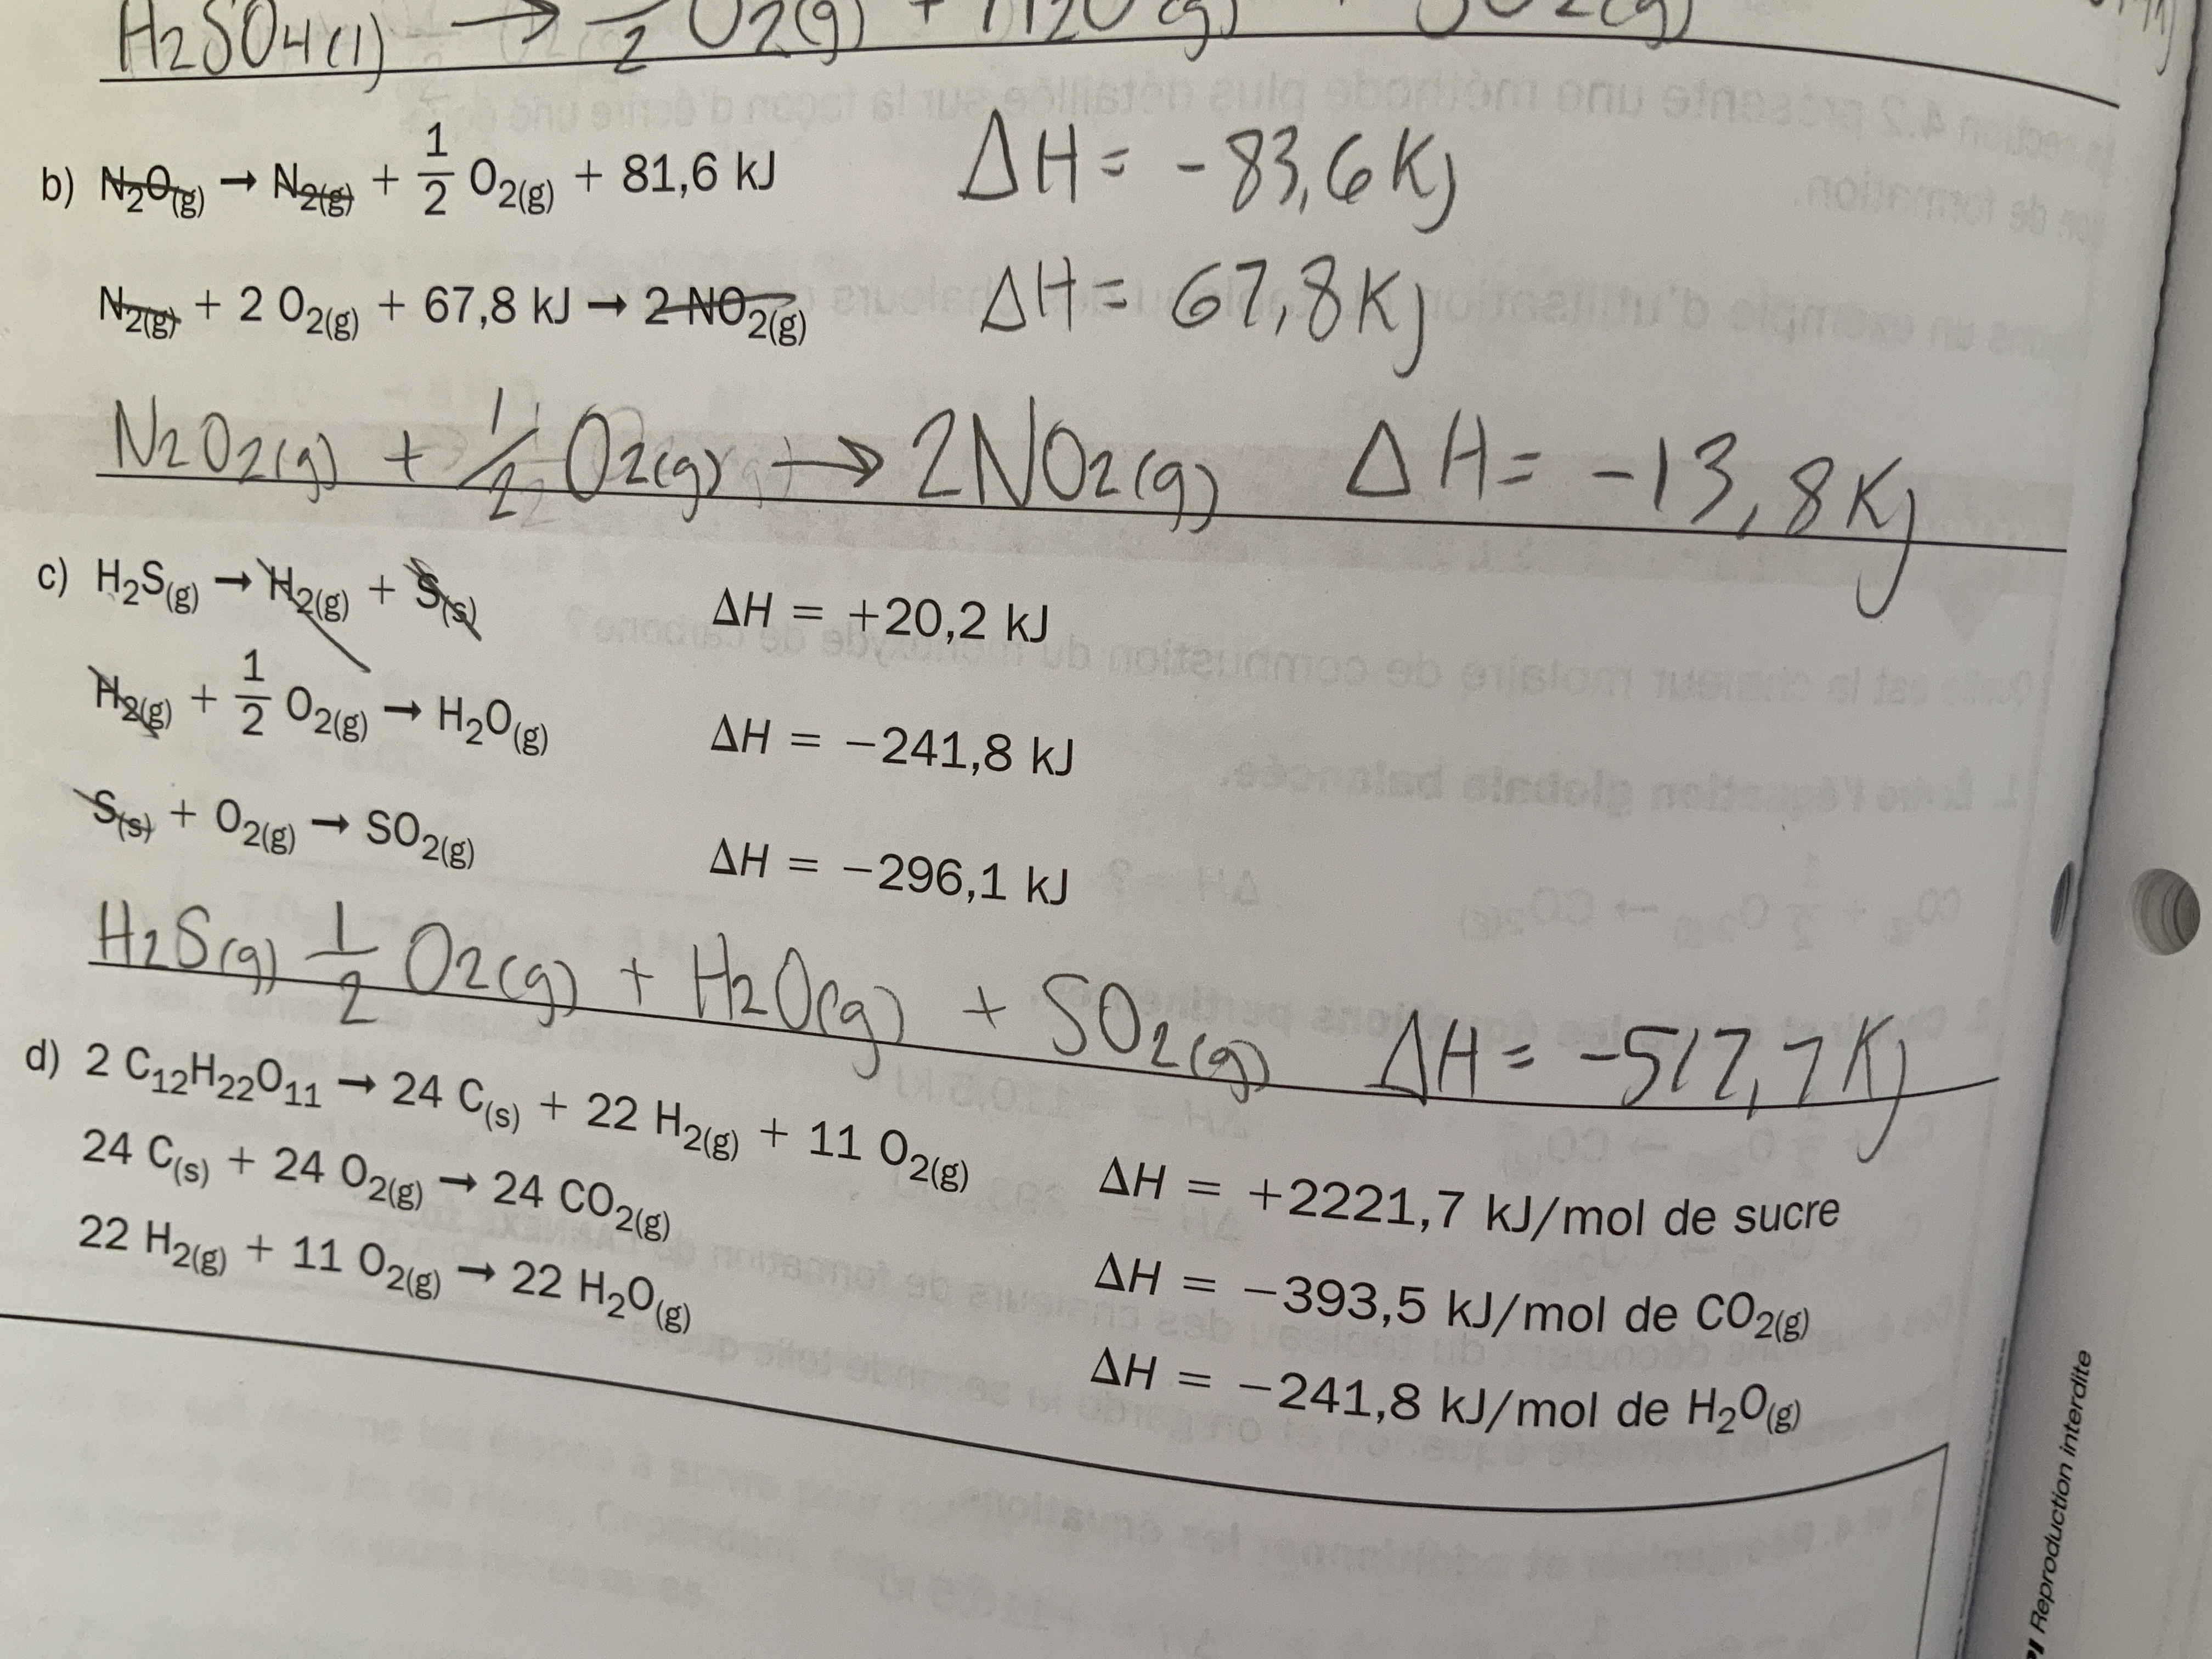 H2SO4(l) → 1/2 O2(g) + H2O(g) + SO2(g)
b) N₂O(g) → N₂(g) + 1/2 O₂(g) + 81,6 kJ ΔH = -83,6 Kj
N₂(g) + 2 O₂(g) + 67,8 kJ → 2 NO₂(g) ΔH = 67,8 Kj
N2O2(g) + 1/2 O2(g) → 2NO2(g) ΔH = -13,8 Kj
c) H₂S(g) → H₂(g) + S(s) ΔH = +20,2 kJ
H₂(g) + 1/2 O₂(g) → H₂O(g) ΔH = −241,8 kJ
S(s) + O₂(g) → SO₂(g) ΔH = −296,1 kJ
H2S(g) 1/2 O2(g) + H2O(g) + SO2(g) ΔH = -517,7 Kj
d) 2 C₁₂H₂₂O₁₁ → 24 C(s) + 22 H₂(g) + 11 O₂(g) ΔH = +2221,7 kJ/mol de sucre
24 C(s) + 24 O₂(g) → 24 CO₂(g) ΔH = −393,5 kJ/mol de CO₂(g)
22 H₂(g) + 11 O₂(g) → 22 H₂O(g) ΔH = −241,8 kJ/mol de H₂O(g)
Reproduction interdite